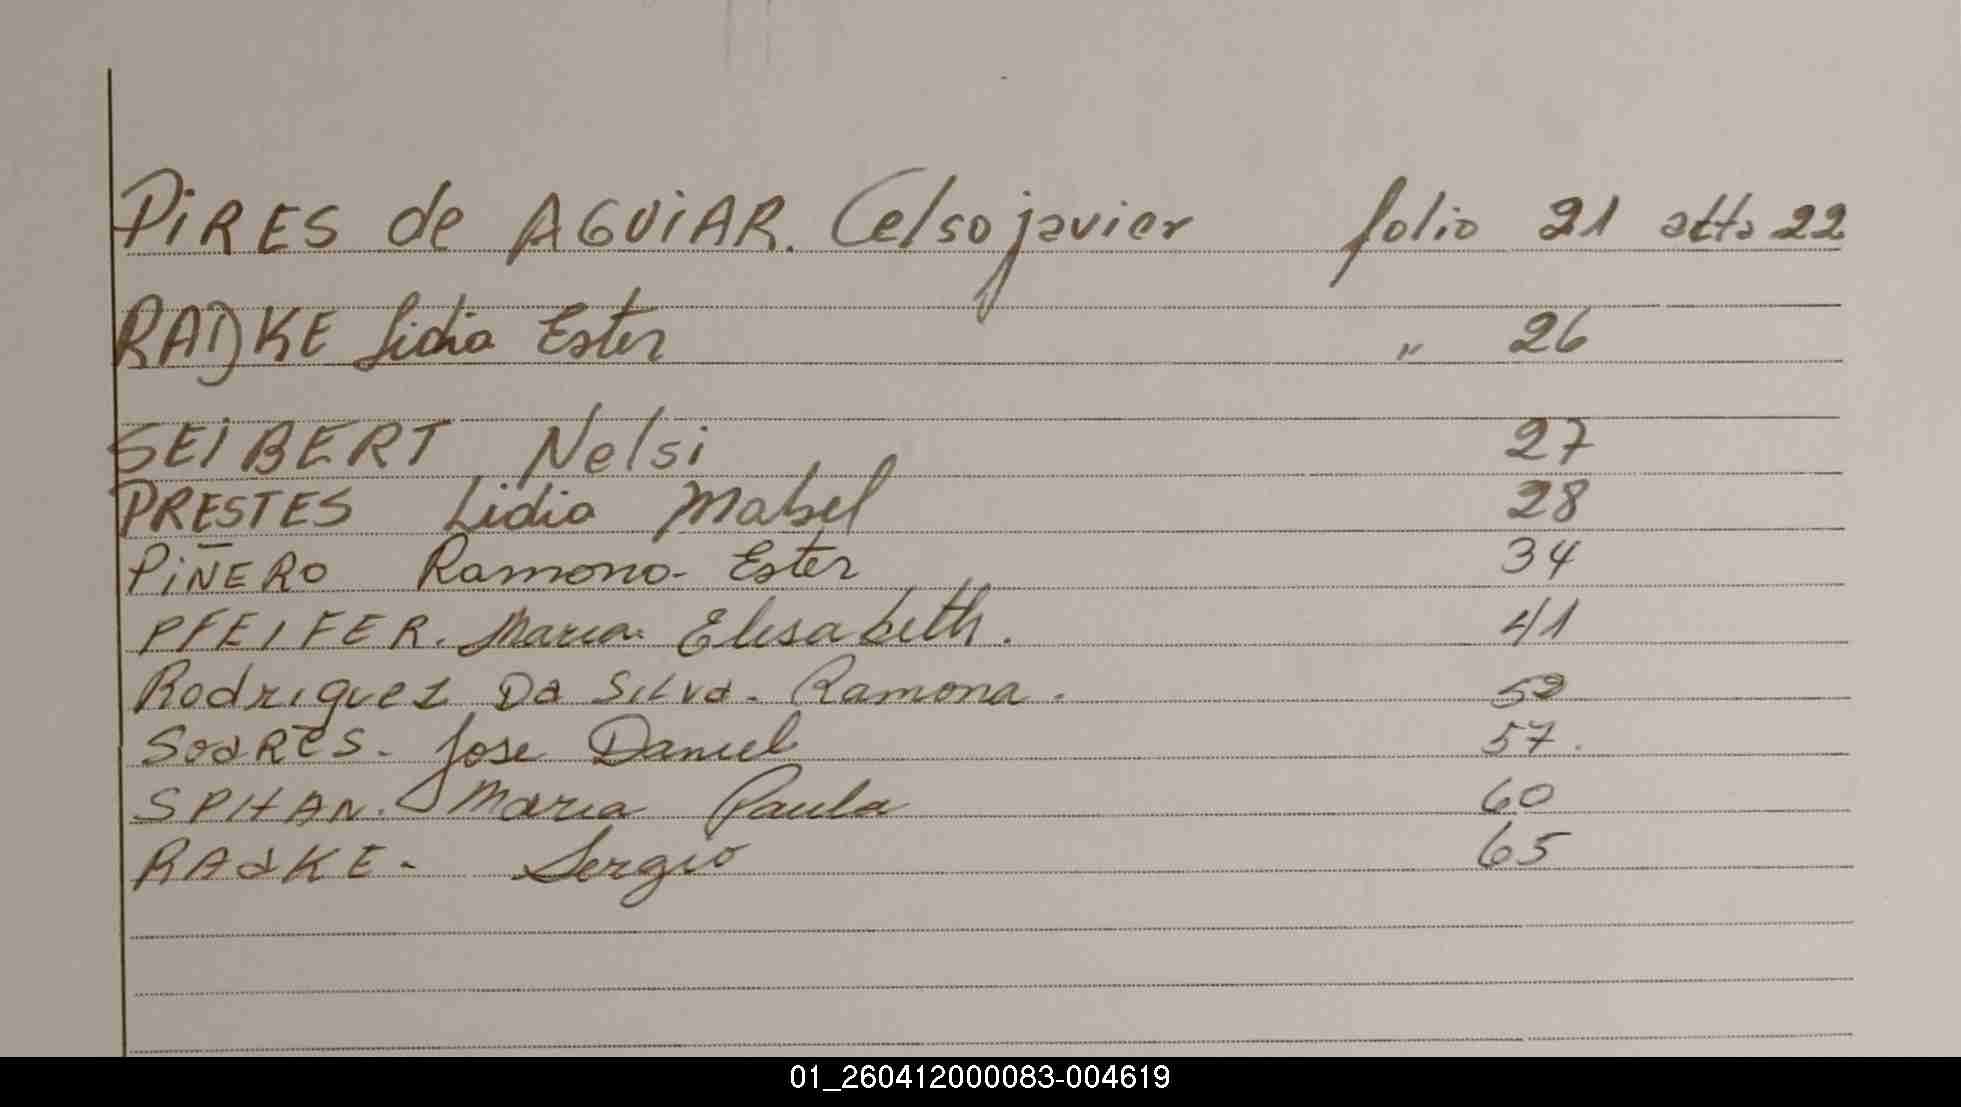 PiRES de AGUiAR. Celso javier folio 21 atta 22
RADKE Lidia Ester " 26
SEiBERT Nelsi 27
PRESTES Lidia Mabel 28
PiÑERO Ramona- Ester 34
PFEIFER. Maria Elisabeth. 41
Rodriguez Da SILVa- Ramona. 52
SoaRES- Jose Daniel 57.
SPHAN. Maria Paula 60
RAdKE- Sergio 65
01_260412000083-004619